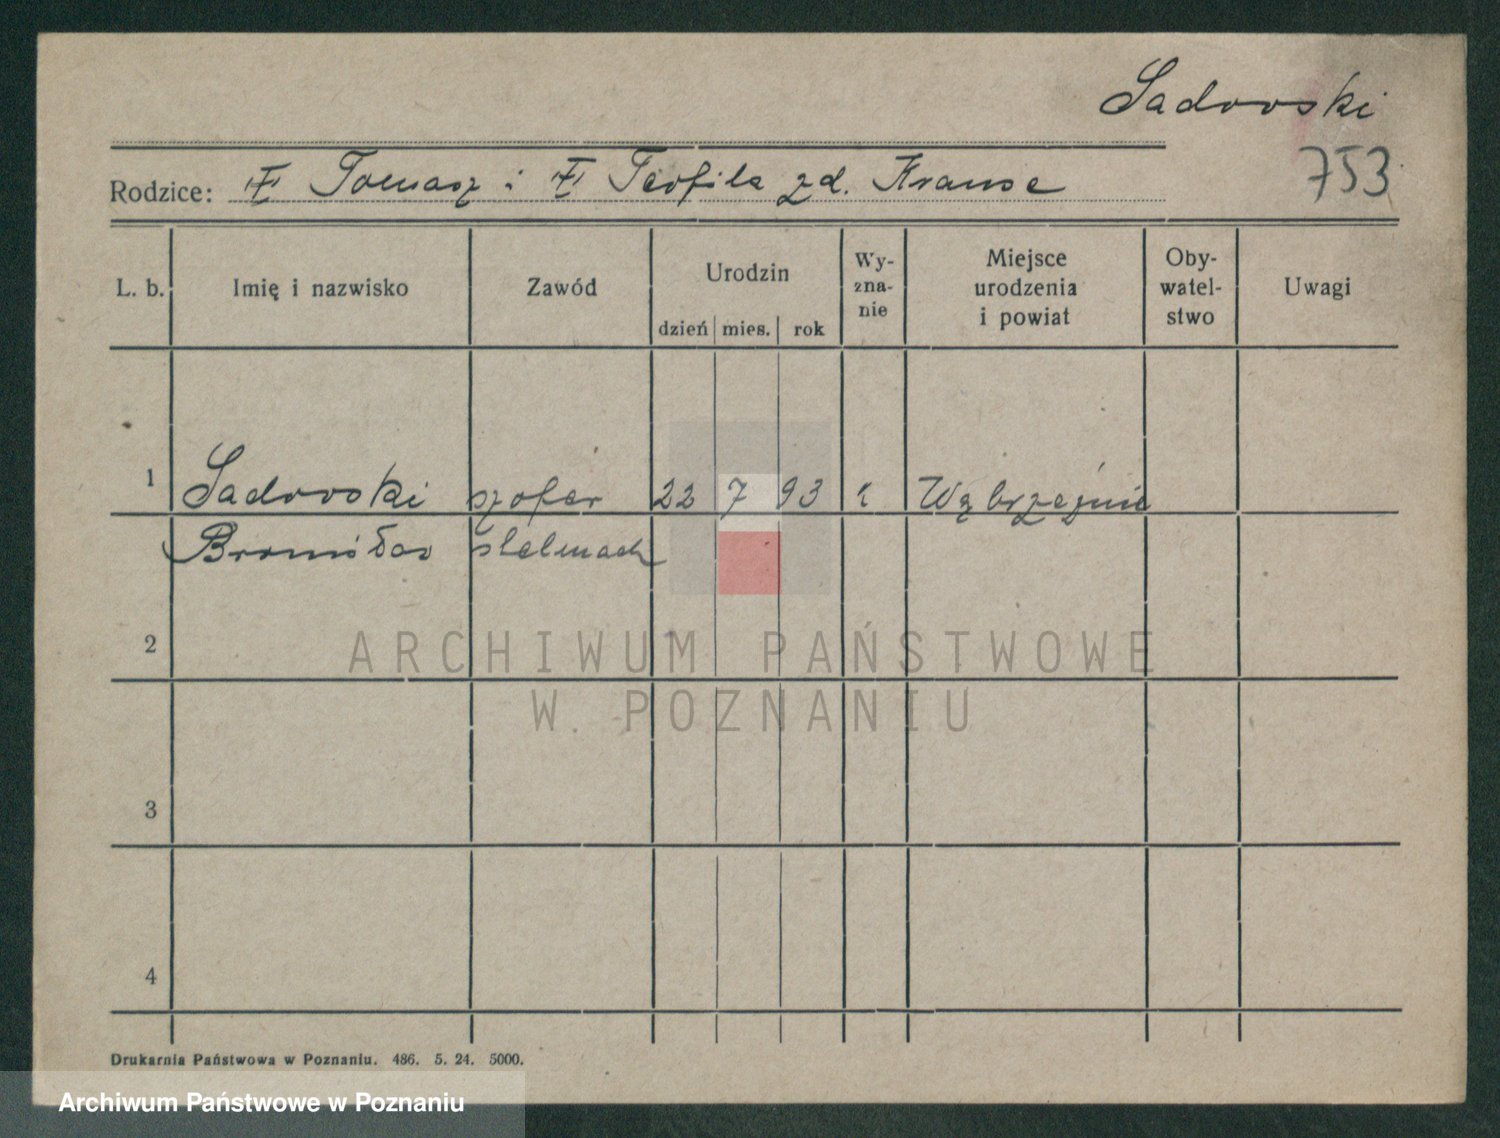 Sadowski
753
Rodzice: Ŧ Tomasz i Ŧ Teofila zd. Krause
L. b. Imię i nazwisko Zawód Urodzin dzień mies. rok Wy-zna-nie Miejsce urodzenia i powiat Oby-watel-stwo Uwagi
1 Sadowski szofer 22 7 93 k Wąbrzeźnie
Bronisław stelmach
2
ARCHIWUM PAŃSTWOWE
W POZNANIU
3
4
Drukarnia Państwowa w Poznaniu. 486. 5. 24. 5000.
Archiwum Państwowe w Poznaniu